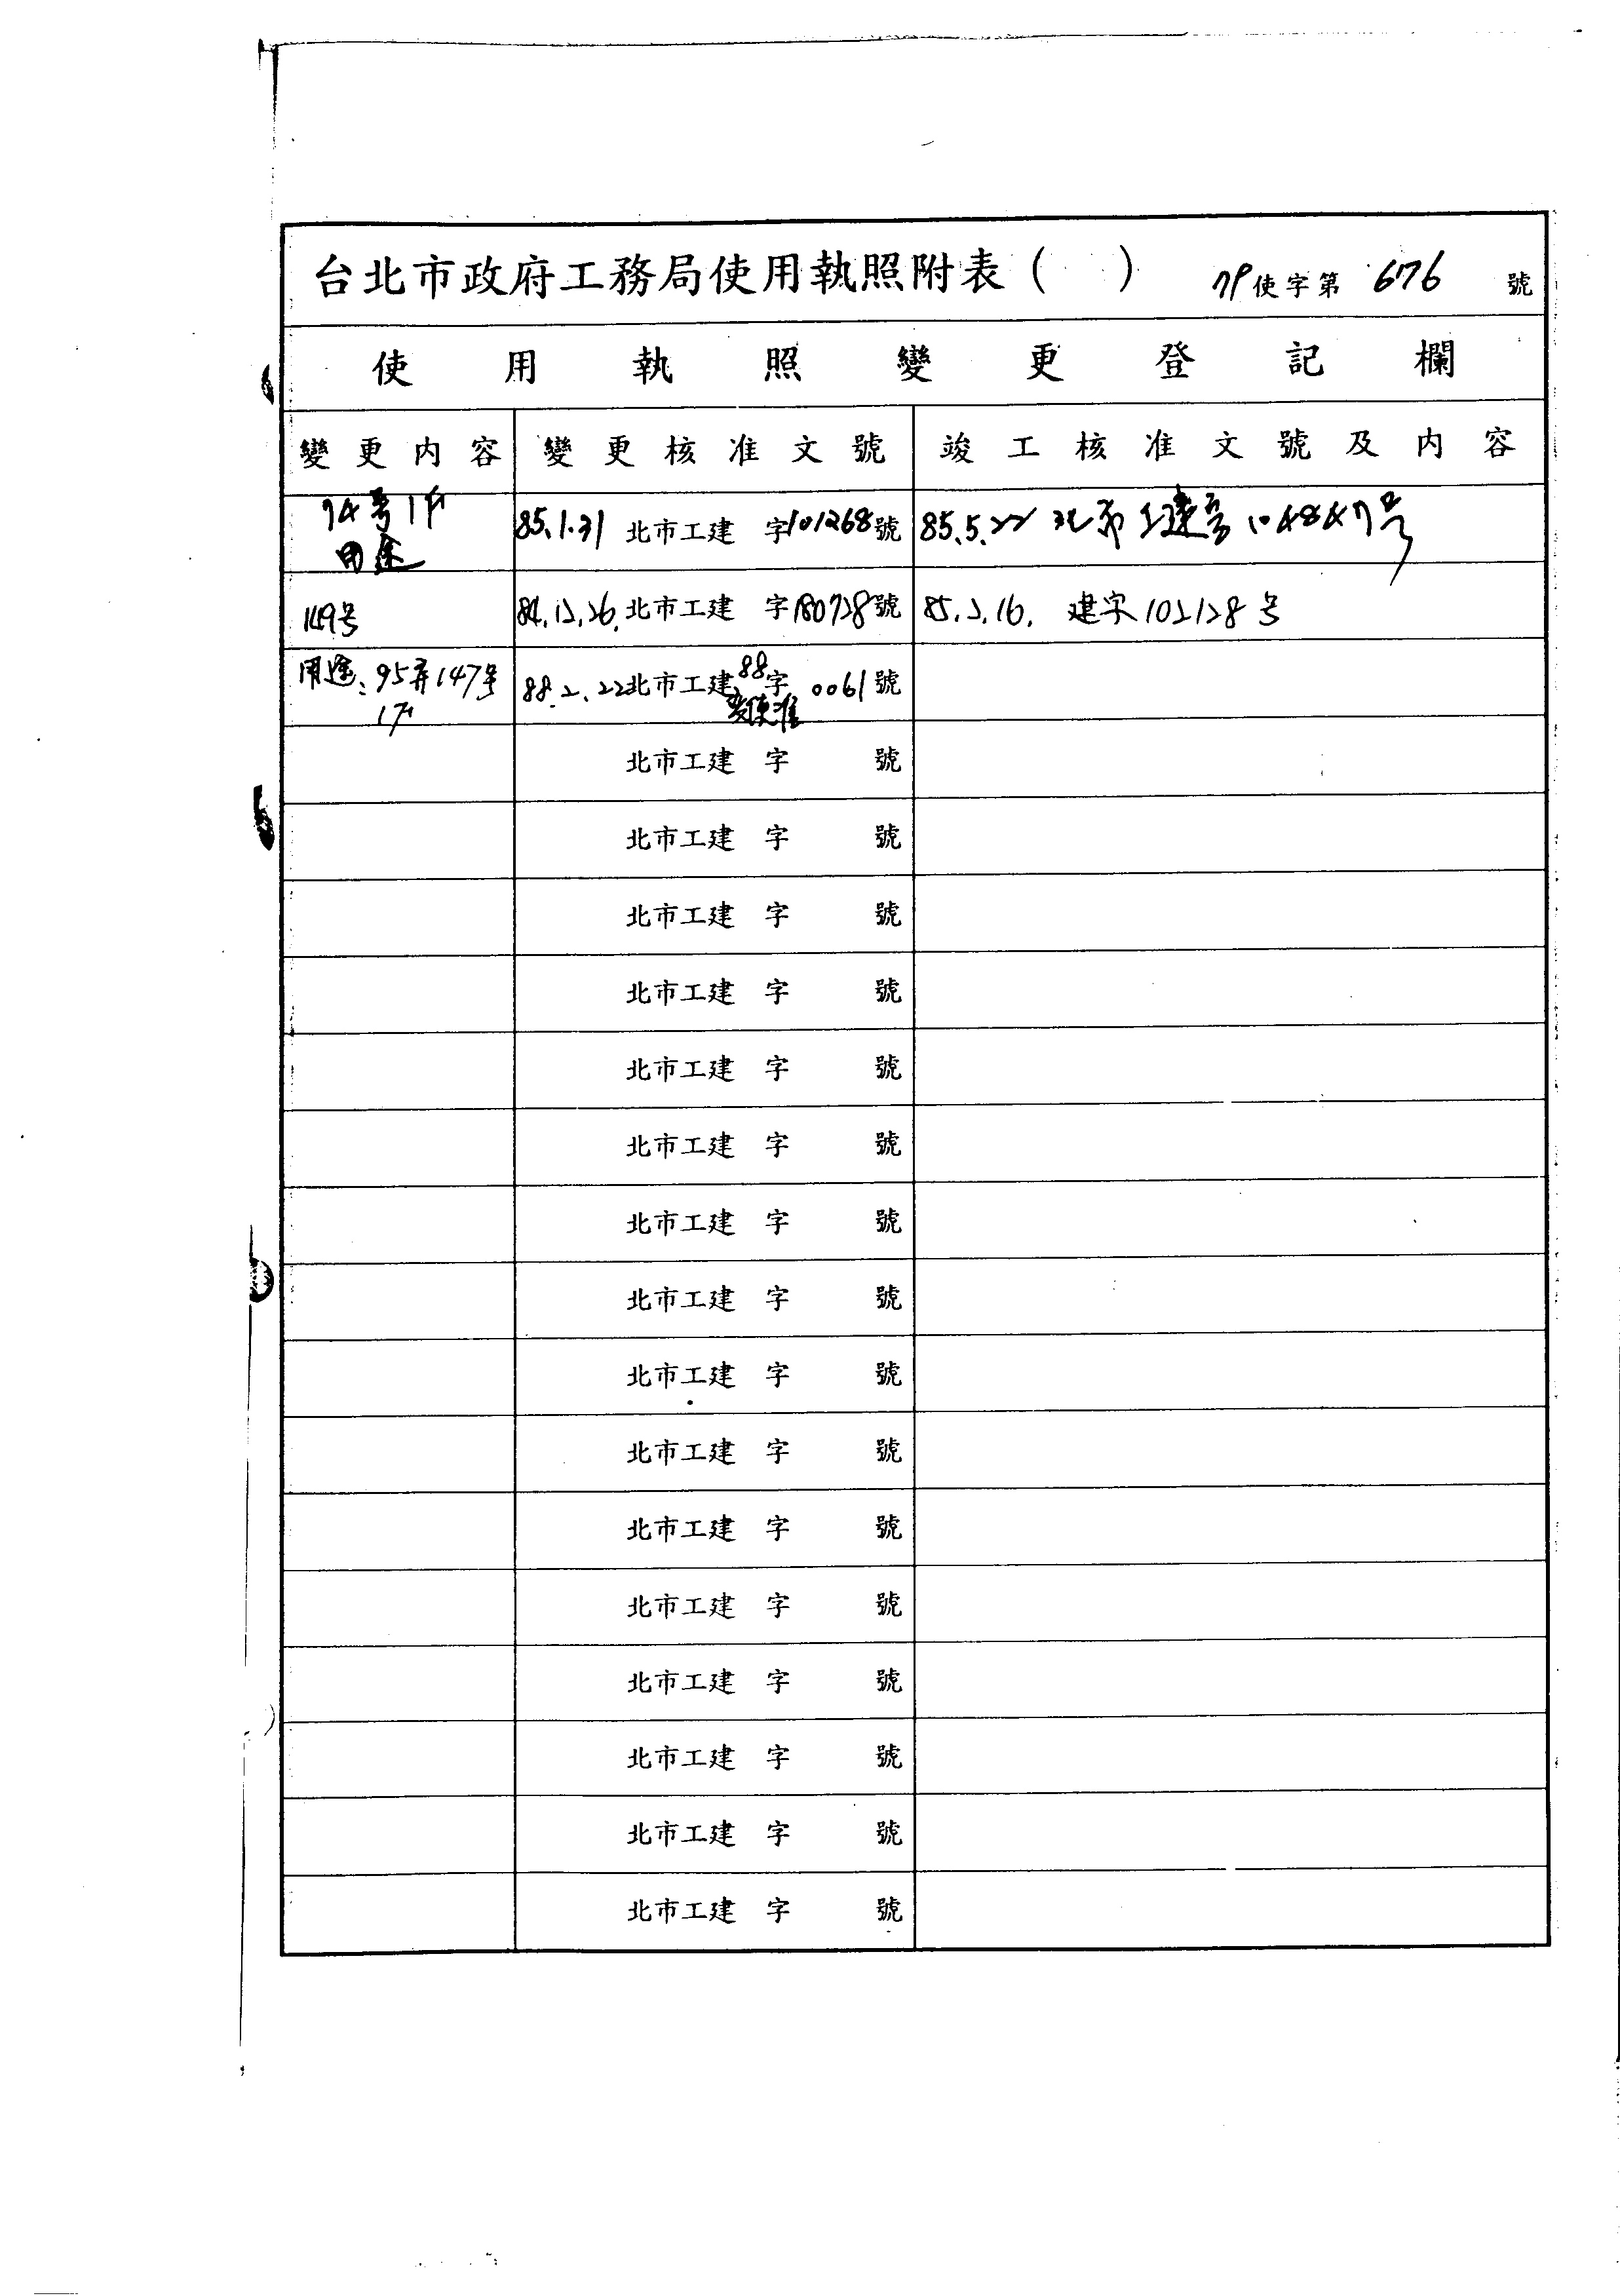 台北市政府工務局使用執照附表（　） 79使字第 676 號
使用執照變更登記欄
變更內容 變更核准文號 竣工核准文號及內容
74号1F 85.1.31 北市工建 字101268號 85.5.22 北市工建字104847号
用途
149号 84.12.26. 北市工建 字180728號 85.2.16. 建字102128号
用途：95弄147号 88.2.22 北市工建 88字 0061號
1F 變使准
北市工建 字 號
北市工建 字 號
北市工建 字 號
北市工建 字 號
北市工建 字 號
北市工建 字 號
北市工建 字 號
北市工建 字 號
北市工建 字 號
北市工建 字 號
北市工建 字 號
北市工建 字 號
北市工建 字 號
北市工建 字 號
北市工建 字 號
北市工建 字 號